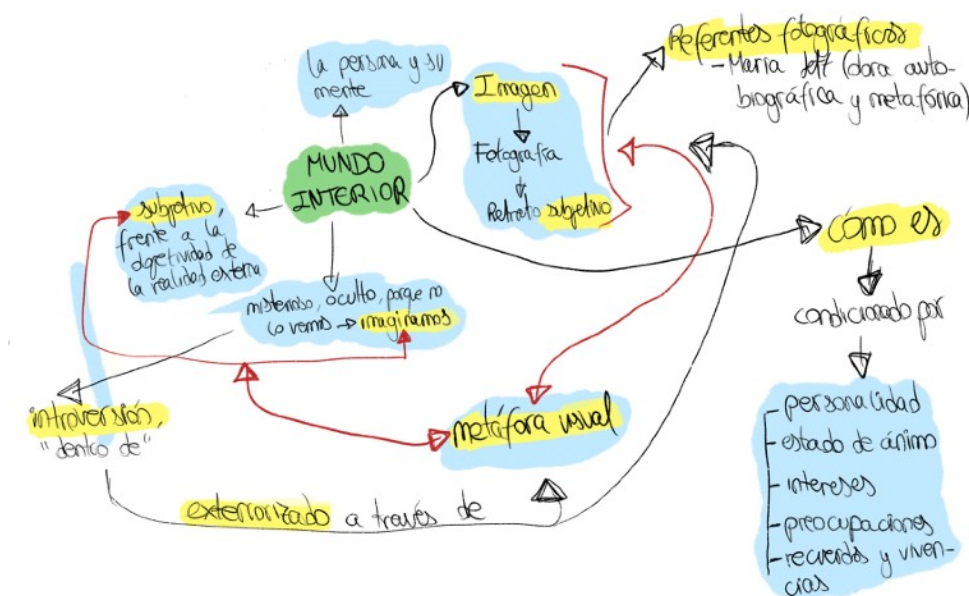 la persona y su
mente
Imagen
Fotografía
Retrato subjetivo
Referentes fotográficos
- María (obra auto-
biográfica y metafórica)
MUNDO
INTERIOR
subjetivo,
frente a la
objetividad de
la realidad externa
misterioso, oculto, porque no
lo vemos → imaginamos
cómo es
condicionado por
- personalidad
- estado de ánimo
- intereses
- preocupaciones
- recuerdos y viven-
cias
introversión,
"dentro de"
metáfora visual
exteriorizado a través de